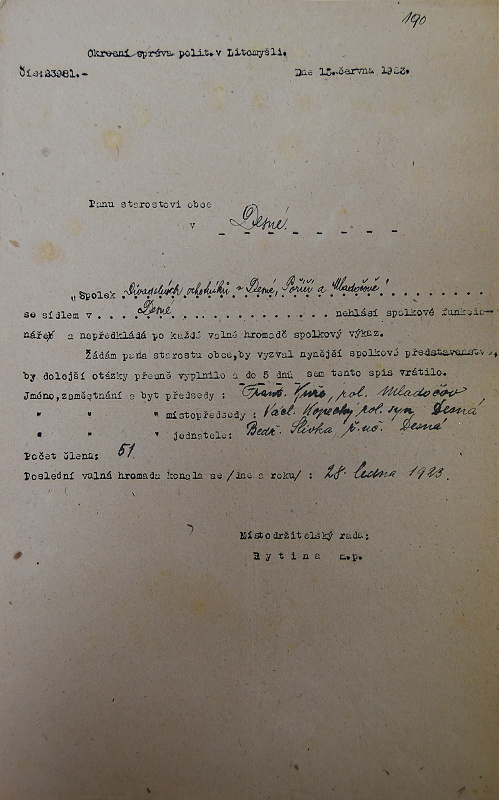 190
Okresní správa polit. v Litomyšli.
Čís:23981.- Dne 15.června 1923.
Panu starostovi obce
v Desné.
"Spolek Divadelních ochotníků v Desné, Poříčí a Mladočově"
se sídlem v Desné nehlásí spolkové funkcio-
nářeř a nepředkládá po každé valné hromadě spolkový výkaz.
Žádám pana starostu obce,by vyzval nynější spolkové představenstvo,
by dolejší otázky přesně vyplnilo a do 5 dnů sem tento spis vrátilo.
Jméno,zaměstnání a byt předsedy : Frant. rol. Mladočov
" " " místopředsedy : Václ. Kopecký rol. syn, Desná
" " " jednatele: Bedř. Slivka ř. uč. Desná
Počet členů: 51
Poslední valná hromada konala se /dne a roku/ : 28. ledna 1923.
Místodržitelský rada:
Rytina m.p.